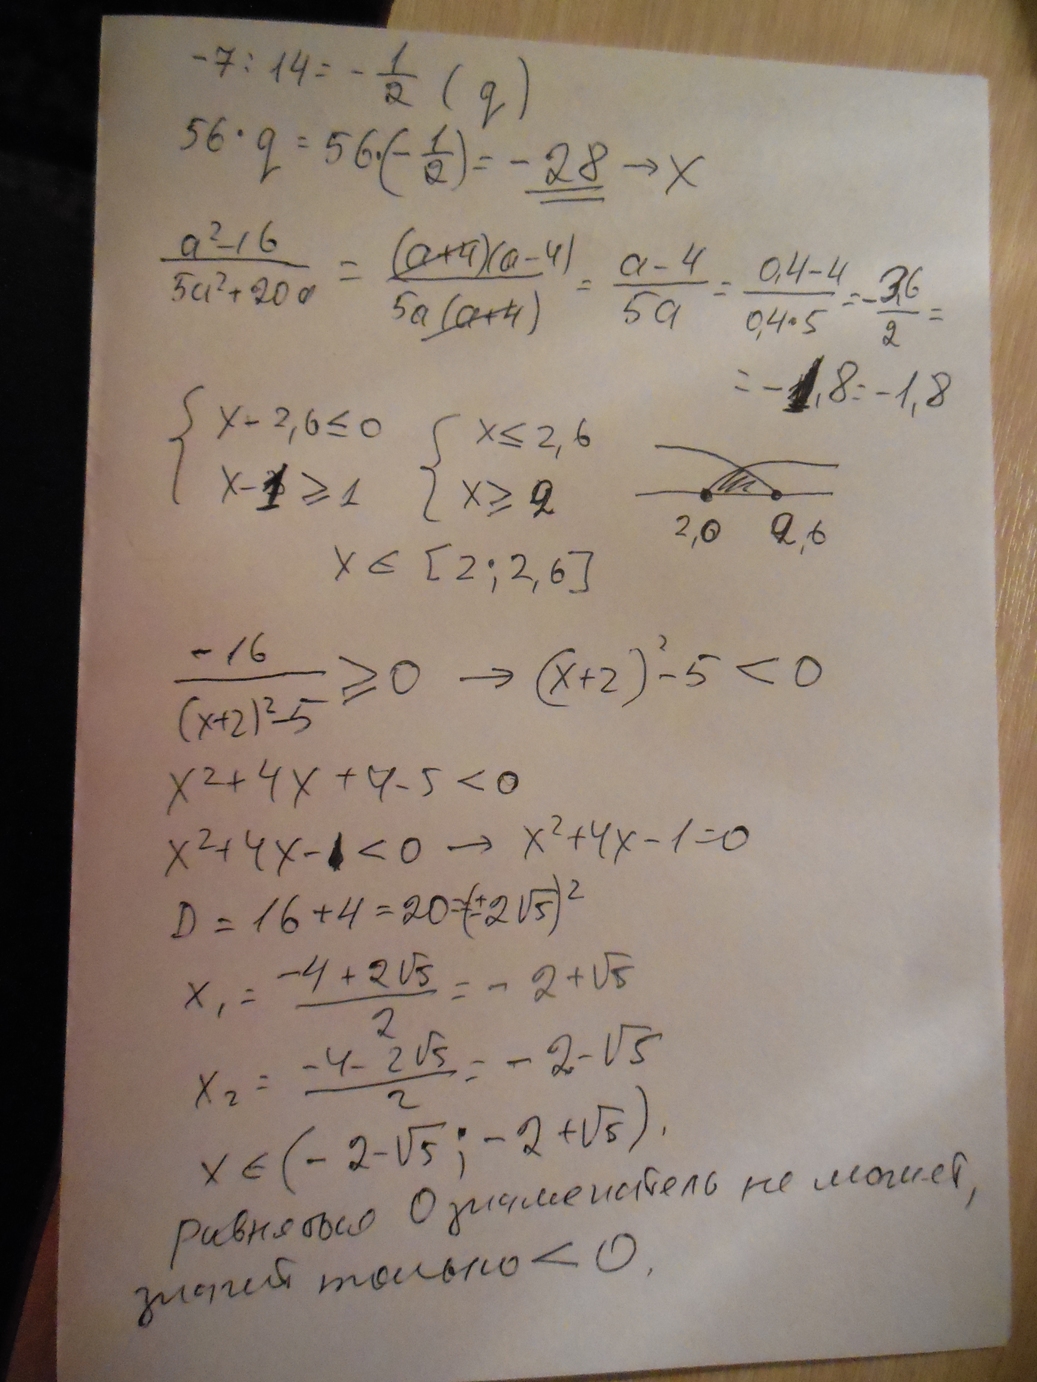 -7 : 14 = - 1/2 (q)
56 · q = 56·(- 1/2) = - 28 → x
(a²-16)/(5a²+20a) = ((a+4)(a-4))/(5a(a+4)) = (a-4)/(5a) = (0,4-4)/(0,4·5) = - 3,6/2 =
= -1,8 = -1,8
{ x - 2,6 ≤ 0 { x ≤ 2,6
x - 1 ≥ 1 x ≥ 2
2,0 2,6
x ∈ [2 ; 2,6]
-16/((x+2)²-5) ≥ 0 → (x+2)² - 5 < 0
x² + 4x + 4 - 5 < 0
x² + 4x - 1 < 0 → x² + 4x - 1 = 0
D = 16 + 4 = 20 = (±2√5)²
x₁ = (-4 + 2√5)/2 = - 2 + √5
x₂ = (-4 - 2√5)/2 = - 2 - √5
x ∈ (- 2 - √5 ; - 2 + √5).
равняться 0 знаменатель не может,
значит только < 0.